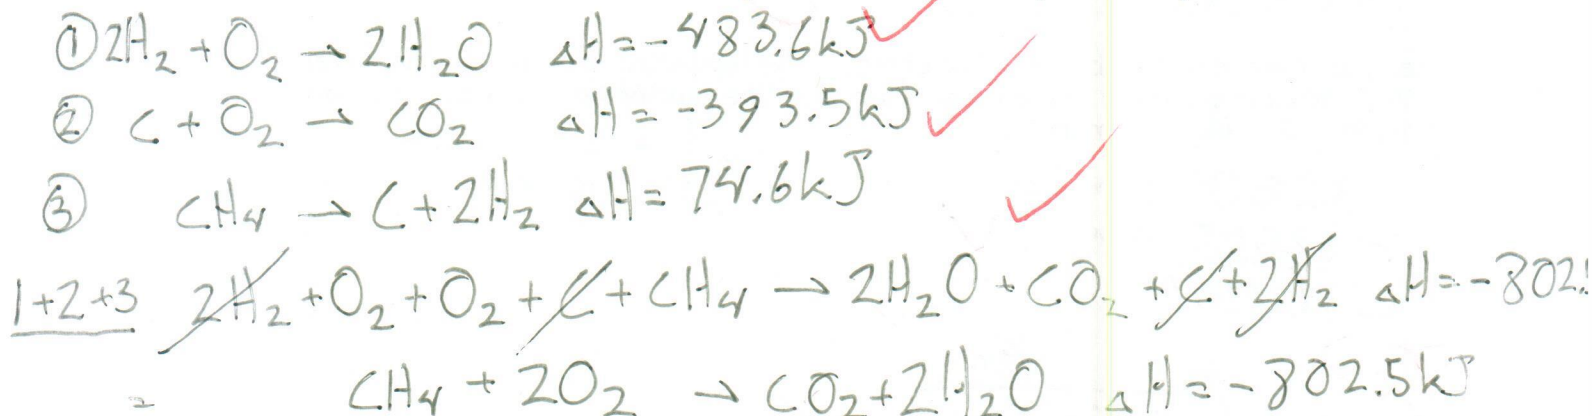 ① 2H₂ + O₂ → 2H₂O ΔH = -483.6kJ
② C + O₂ → CO₂ ΔH = -393.5kJ
③ CH₄ → C + 2H₂ ΔH = 74.6kJ
1+2+3 2H₂ + O₂ + O₂ + C + CH₄ → 2H₂O + CO₂ + C + 2H₂ ΔH = -802.
= CH₄ + 2O₂ → CO₂ + 2H₂O ΔH = -802.5kJ